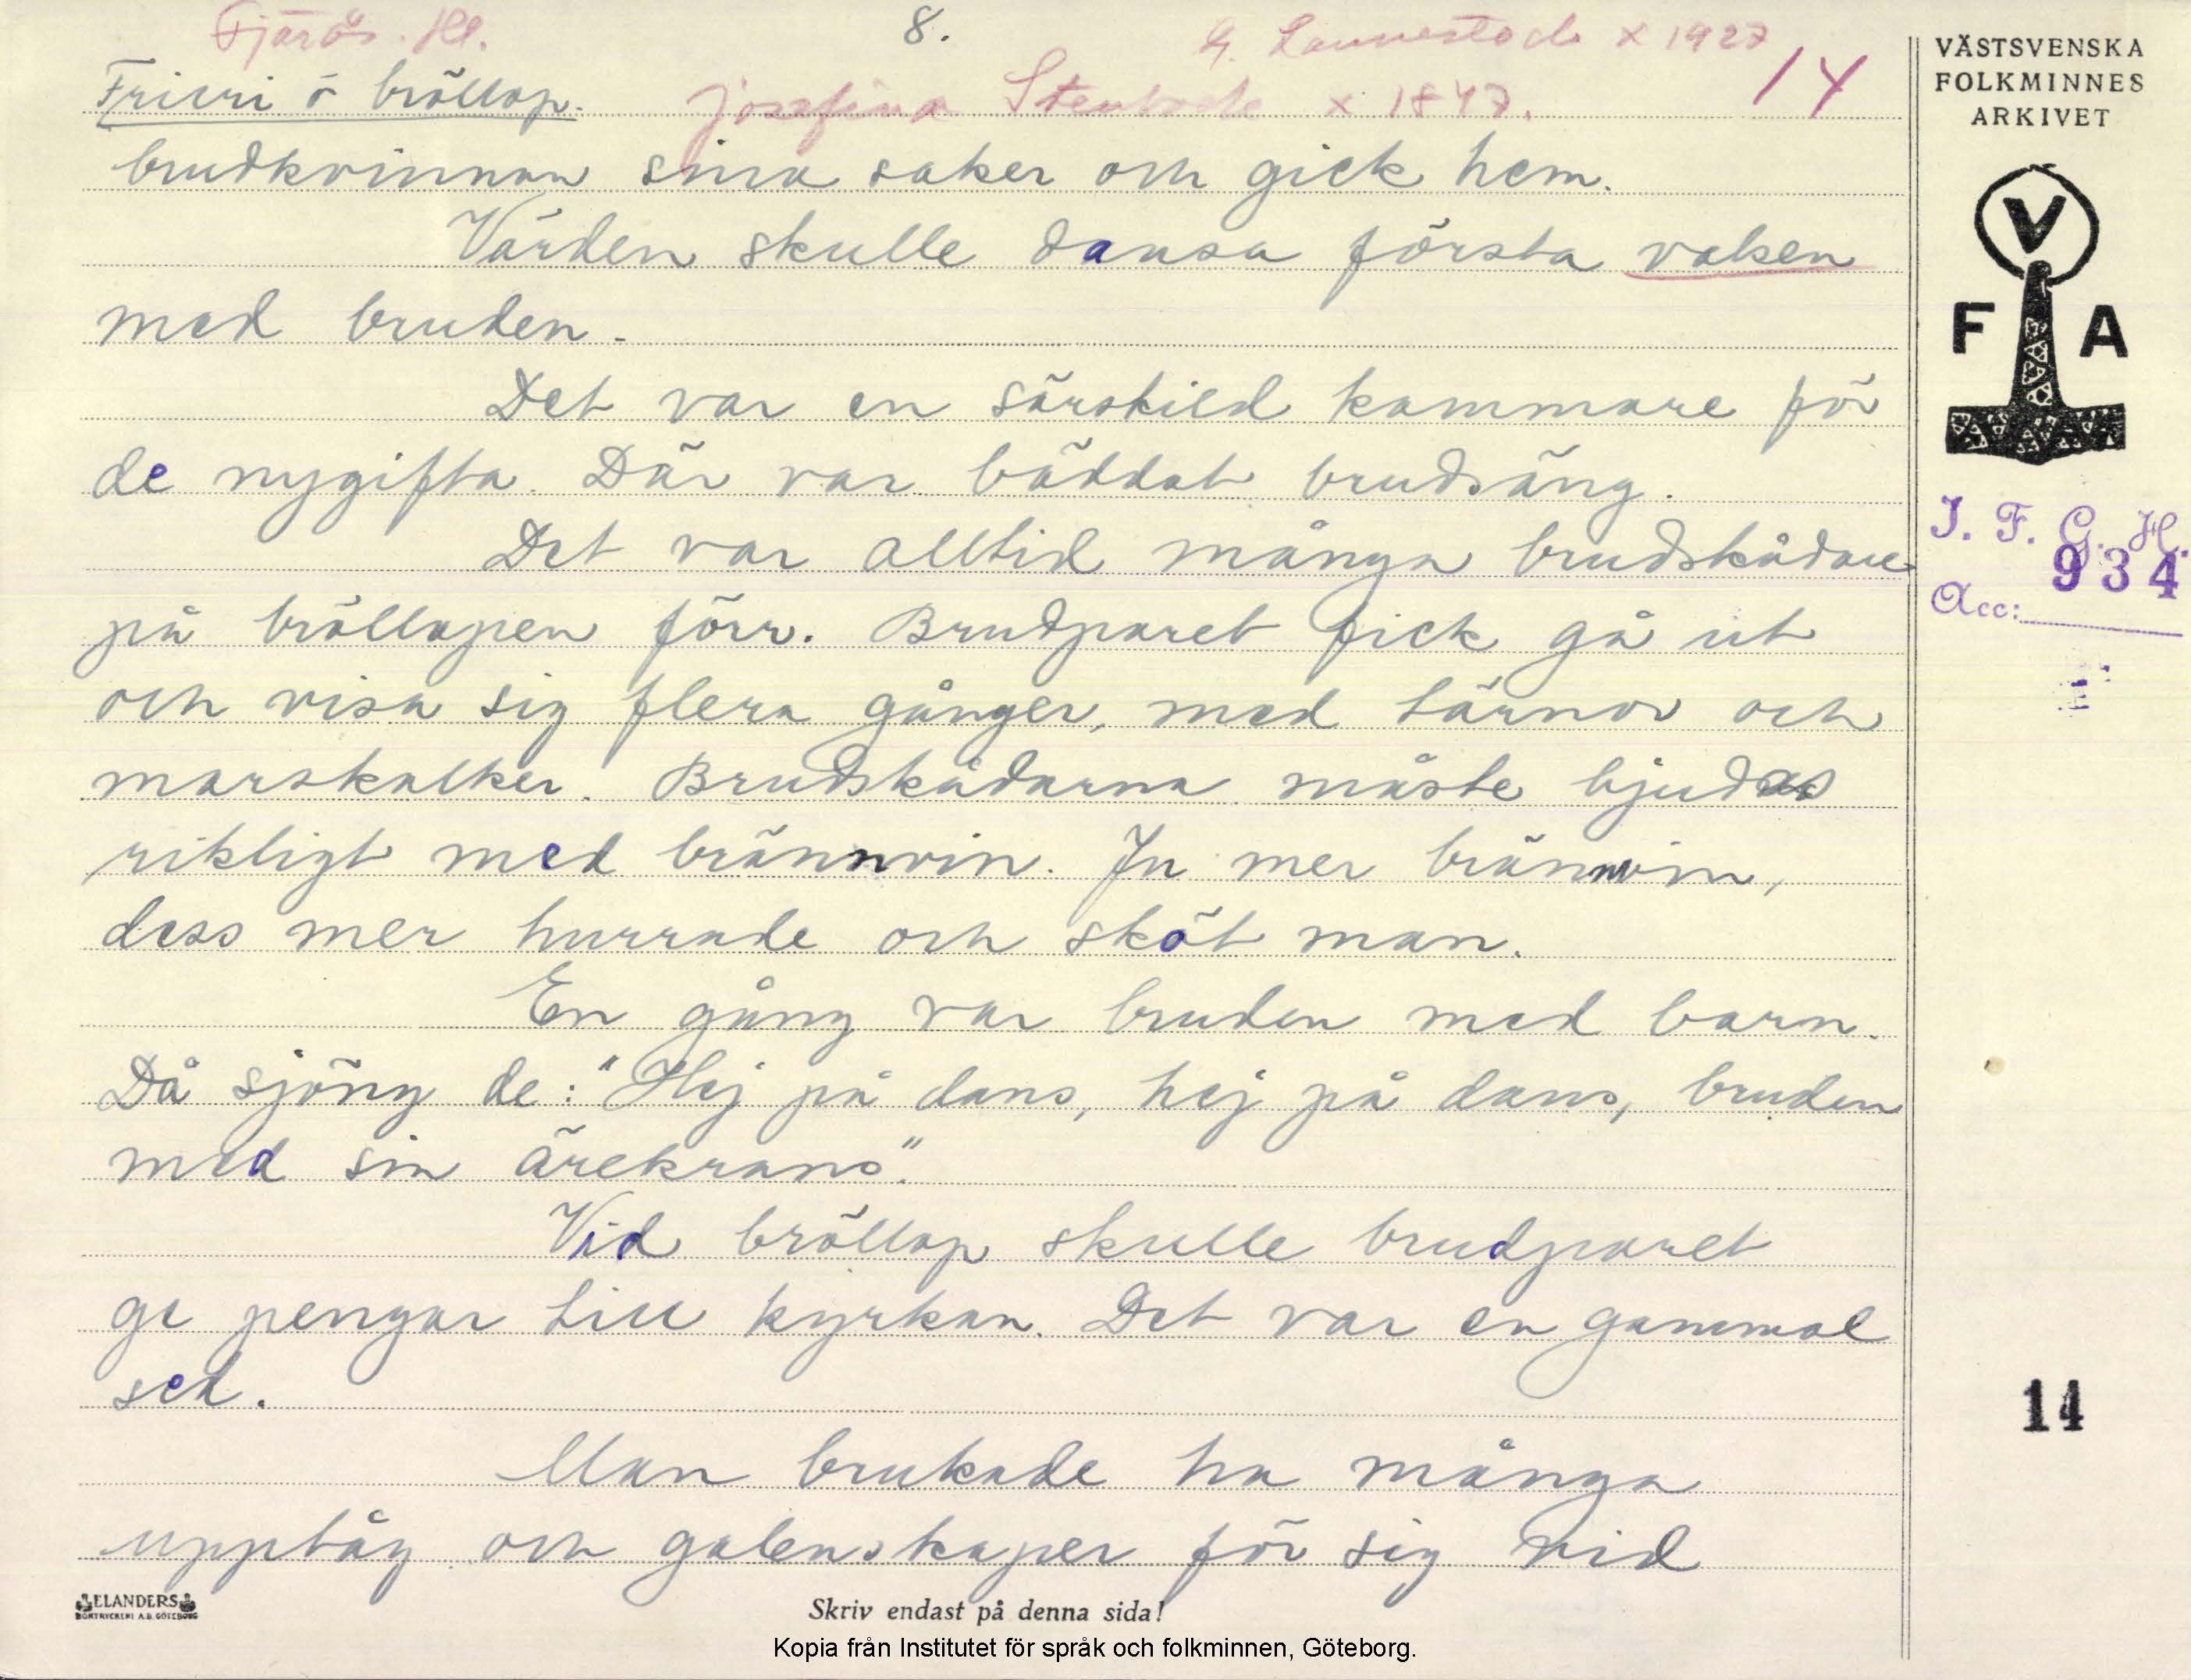 Fjärås. Hl.
8.
G. Lannestock x 1927
14
Frieri o bröllop.
Josefina Stenbock x 1847.
brudkvinnan sina saker och gick hem.
Värden skulle dansa första valsen
med bruden.
Det var en särskild kammare för
de nygifta. Där var bäddat brudsäng.
Det var alltid många brudskådare
på bröllopen förr. Brudparet fick gå ut
och visa sig flera gånger, med tärnor och
marskalker. Brudskådarna måste bjudas
rikligt med brännvin. Ju mer brännvin,
dess mer hurrade och sköt man.
En gång var bruden med barn.
Då sjöng de: "Hej på dans, hej på dans, bruden
med sin ärekrans".
Vid bröllop skulle brudparet
ge pengar till kyrkan. Det var en gammal
sed.
Man brukade ha många
upptåg och galenskaper för sig vid
VÄSTSVENSKA
FOLKMINNES
ARKIVET
V
F A
I. F. G. H.
934
Acc:
14
ELANDERS
BOKTRYCKERI A.B. GÖTEBORG
Skriv endast på denna sida!
Kopia från Institutet för språk och folkminnen, Göteborg.